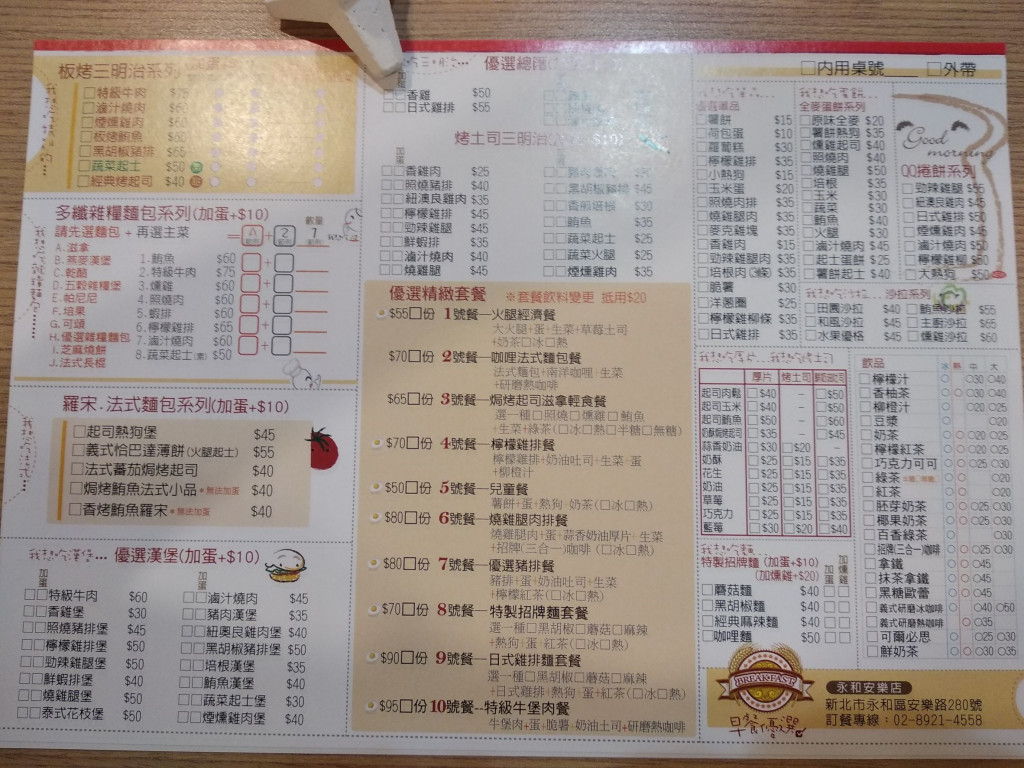 板烤三明治系列
特級牛肉 $75
滷汁燒肉 $60
煙燻雞肉 $60
板烤鮪魚 $60
黑胡椒豬排 $65
蔬菜起士 $50
經典烤起司 $40
多纖雜糧麵包系列(加蛋+$10)
請先選麵包 + 再選主菜 = A + 2 數量 1
A.滋拿
B.燕麥漢堡
C.乾酪
D.五穀雜糧堡
E.帕尼尼
F.培果
G.可頌
H.優選雜糧麵包
I.芝麻燒餅
J.法式長棍
1.鮪魚 $60
2.特級牛肉 $75
3.燻雞 $60
4.燒肉 $60
5.蝦排 $60
6.檸檬雞排 $65
7.滷汁燒肉 $60
8.蔬菜起士(素) $50
羅宋.法式麵包系列(加蛋+$10)
起司熱狗堡 $45
義式恰巴達薄餅(火腿起士) $55
法式蕃茄焗烤起司 $40
焗烤鮪魚法式小品 *無法加蛋 $40
香烤鮪魚羅宋 *無法加蛋 $40
我想吃漢堡… 優選漢堡(加蛋+$10)
加蛋
特級牛肉 $60
香雞堡 $30
照燒豬排堡 $45
檸檬雞排堡 $50
勁辣雞腿堡 $50
鮮蝦排堡 $40
燒雞腿堡 $50
泰式花枝堡 $50
加蛋
滷汁燒肉 $45
豬肉漢堡 $35
紐奧良雞肉堡 $40
黑胡椒豬排堡 $50
培根漢堡 $35
鮪魚漢堡 $40
蔬菜起士堡 $30
煙燻雞肉堡 $40
優選總匯
香雞 $50
日式雞排 $55
烤土司三明治
加蛋
香雞肉 $25
照燒豬排 $40
紐澳良雞肉 $35
檸檬雞排 $45
勁辣雞腿 $45
鮮蝦排 $35
滷汁燒肉 $40
燒雞腿 $45
黑胡椒豬排 $45
香煎培根
鮪魚 $35
蔬菜起士 $25
蔬菜火腿 $25
煙燻雞肉 $35
優選精緻套餐 ※套餐飲料變更 抵用$20
$55□份 1號餐—火腿經濟餐
大火腿+蛋+生菜+草莓土司
+奶茶□冰□熱
$70□份 2號餐—咖哩法式麵包餐
法式麵包+南洋咖哩+生菜
+研磨熱咖啡
$65□份 3號餐—焗烤起司滋拿輕食餐
選一種□照燒□燻雞□鮪魚
+生菜+綠茶(□冰□熱□半糖□無糖)
$70□份 4號餐—檸檬雞排餐
檸檬雞排+奶油吐司+生菜+蛋
+柳橙汁
$50□份 5號餐—兒童餐
薯餅+蛋+熱狗+奶茶(□冰□熱)
$80□份 6號餐—燒雞腿肉排餐
燒雞腿肉+蛋+蒜香奶油厚片+生菜
+招牌(三合一)咖啡(□冰□熱)
$80□份 7號餐—優選豬排餐
豬排+蛋+奶油吐司+生菜
+檸檬紅茶(□冰□熱)
$70□份 8號餐—特製招牌麵套餐
選一種□黑胡椒□蘑菇□麻辣
+熱狗+蛋+紅茶(□冰□熱)
$90□份 9號餐—日式雞排麵套餐
選一種□黑胡椒□蘑菇□麻辣
+日式雞排+熱狗+蛋+紅茶(□冰□熱)
$95□份 10號餐--特級牛堡肉餐
牛堡肉+蛋+脆薯+奶油土司+研磨熱咖啡
□內用桌號 □外帶
薯餅 $15
荷包蛋 $10
蘿蔔糕 $30
檸檬雞排 $35
小熱狗 $15
玉米蛋 $20
照燒肉排 $35
燒雞腿肉 $35
麥克雞塊 $35
香雞肉 $15
勁辣雞腿肉 $35
培根肉(3條) $35
脆薯 $30
洋蔥圈 $25
檸檬雞柳條 $35
日式雞排 $35
全麥蛋餅系列
原味全麥 $20
薯餅熱狗 $35
燻雞起司 $40
照燒肉 $40
燒雞腿 $50
培根 $35
玉米 $30
蔬菜 $30
鮪魚 $40
火腿 $30
滷汁燒肉 $45
起士蛋餅 $25
薯餅起士 $40
Good morning
QQ捲餅系列
勁辣雞腿 $55
紐澳良雞肉 $45
日式雞排 $50
煙燻雞肉 $45
滷汁燒肉 $50
檸檬雞柳 $60
大熱狗 $50
沙拉系列
田園沙拉 $40
和風沙拉 $45
水果優格 $45
鮪魚沙拉
主廚沙拉 $65
燻雞沙拉 $60
厚片 烤土司
起司肉鬆 $40 – $50
起司玉米 $40 – $50
起司鮪魚 $50 – $60
奶酥焗烤起司 $35 – $45
蒜香奶油 $30 $20 –
奶酥 $25 $15 $35
花生 $25 $15 $35
奶油 $25 $15 $35
草莓 $25 $15 $35
巧克力 $25 $15 $35
藍莓 $30 $20 $40
特製招牌麵(加蛋+$10)
(加燻雞+$20) 加蛋 加燻雞
蘑菇麵 $40
黑胡椒麵 $40
經典麻辣麵 $40
咖哩麵 $50
飲品 冰 熱 中 大
檸檬汁 30 40
柳橙汁 20 25
豆漿 20
奶茶 20 25
檸檬紅茶
巧克力可可 25 30
綠茶 20
紅茶 20
胚芽奶茶
椰果奶茶
百香綠茶 30
招牌(三合一)咖啡 25 30
拿鐵 45
抹茶拿鐵 45
黑糖歐蕾 45
義式研磨冰咖啡 40 60
義式研磨熱咖啡 35
可爾必思 25 30
鮮奶茶 30 35
BREAKFAST
早餐優選
永和安樂店
新北市永和區安樂路280號
訂餐專線：02-8921-4558